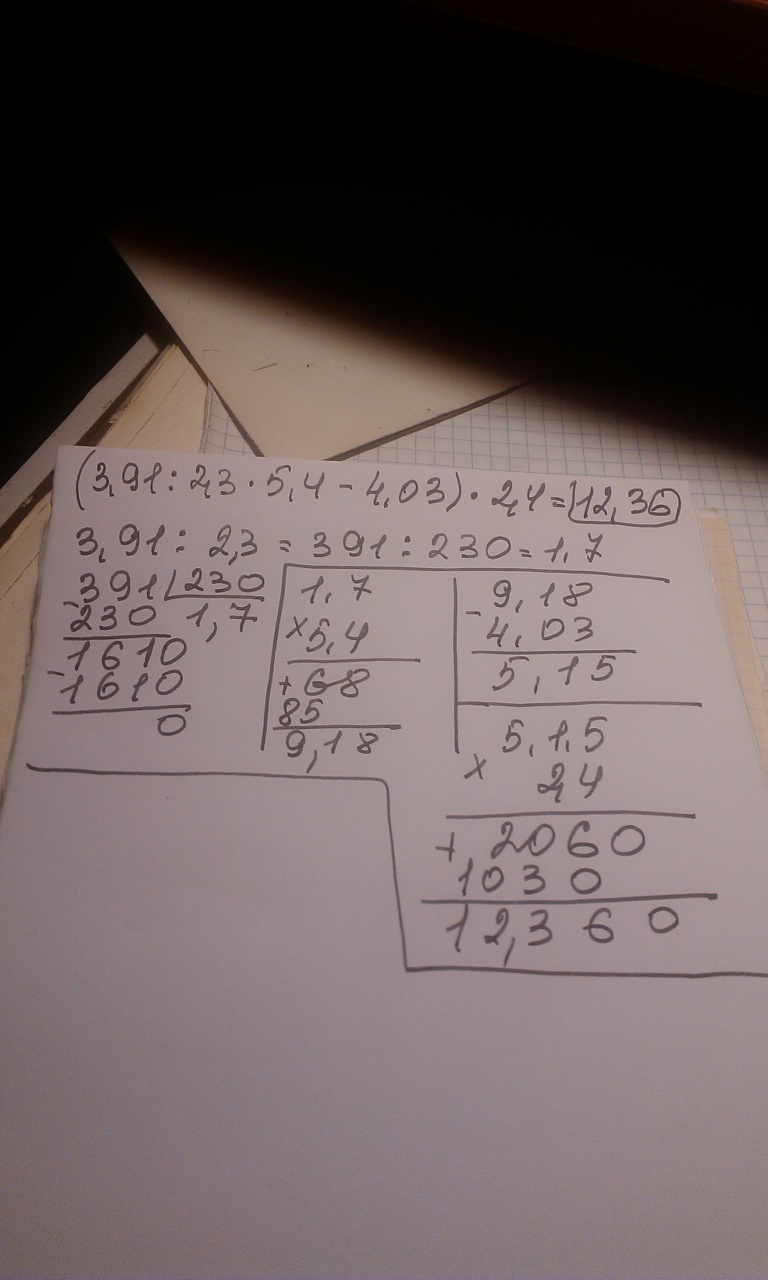 (3,91 : 2,3 · 5,4 - 4,03) · 2,4 = 12,36
3,91 : 2,3 = 391 : 230 = 1,7
-391 | 230
230 1,7
-1610
-1610
0
1,7
×5,4
+68
85
9,18
9,18
-4,03
5,15
5,15
× 2,4
+ 2060
1030
12,360